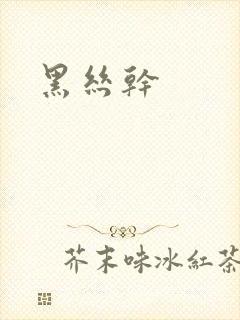 黑絲幹
芥末味冰紅茶